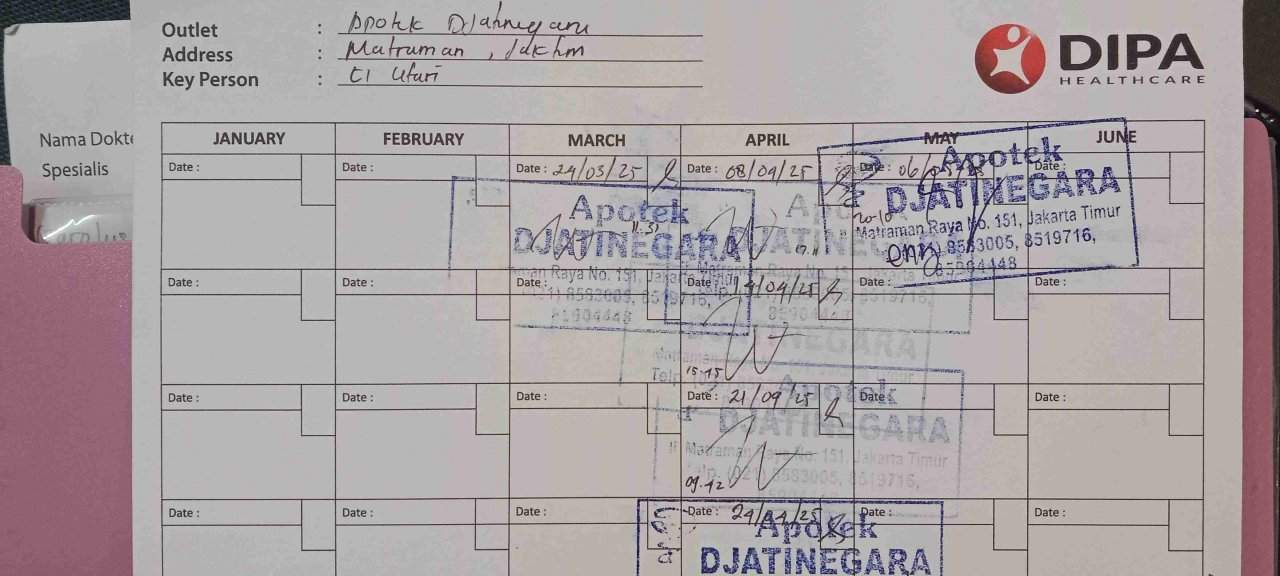 Outlet : Apotek Djatinegara
Address : Matraman, Jaktim
Key Person : 
DIPA
HEALTHCARE
Nama Dokte
Spesialis
JANUARY FEBRUARY MARCH APRIL MAY JUNE
Date : Date : Date : 24/03/25 Date : 08/04/25 Date : 06/05/25 Date :
Apotek
DJATINEGARA
Matraman Raya No. 151, Jakarta Timur
8583005, 8519716,
85904448
Apotek
DJATINEGARA
man Raya No. 151, Jakarta Timur
(021) 8583005, 8519716,
85904448
11.31
Date : Date : Date : Date : 14/04/25 Date : Date :
15.15
DJATINEGARA
Date : Date : Date : Date : 21/04/25 Date : Date :
Apotek
DJATINEGARA
Jl. Matraman Raya No. 151, Jakarta Timur
Telp. (021) 8583005, 8519716,
09.42
Date : Date : Date : Date : 24/04/25 Date : Date :
Apotek
DJATINEGARA